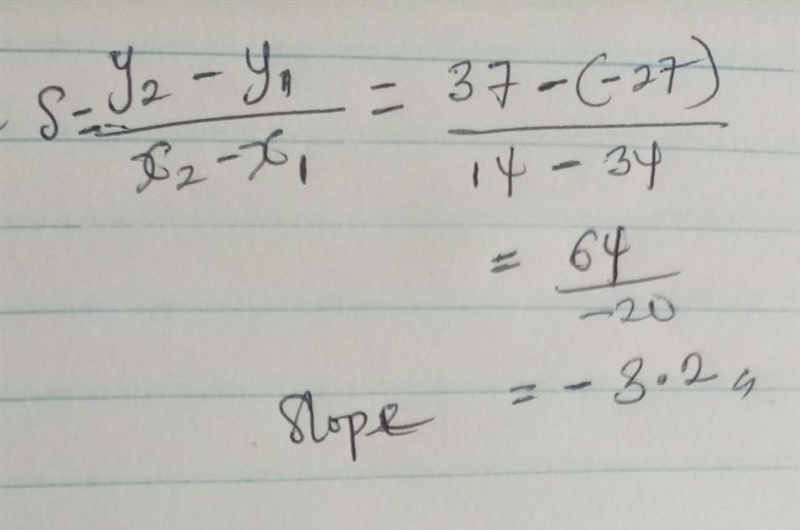 S = y₂ - y₁ / x₂ - x₁ = 37 - (-27) / 14 - 34
= 64 / -20
Slope = - 3.2